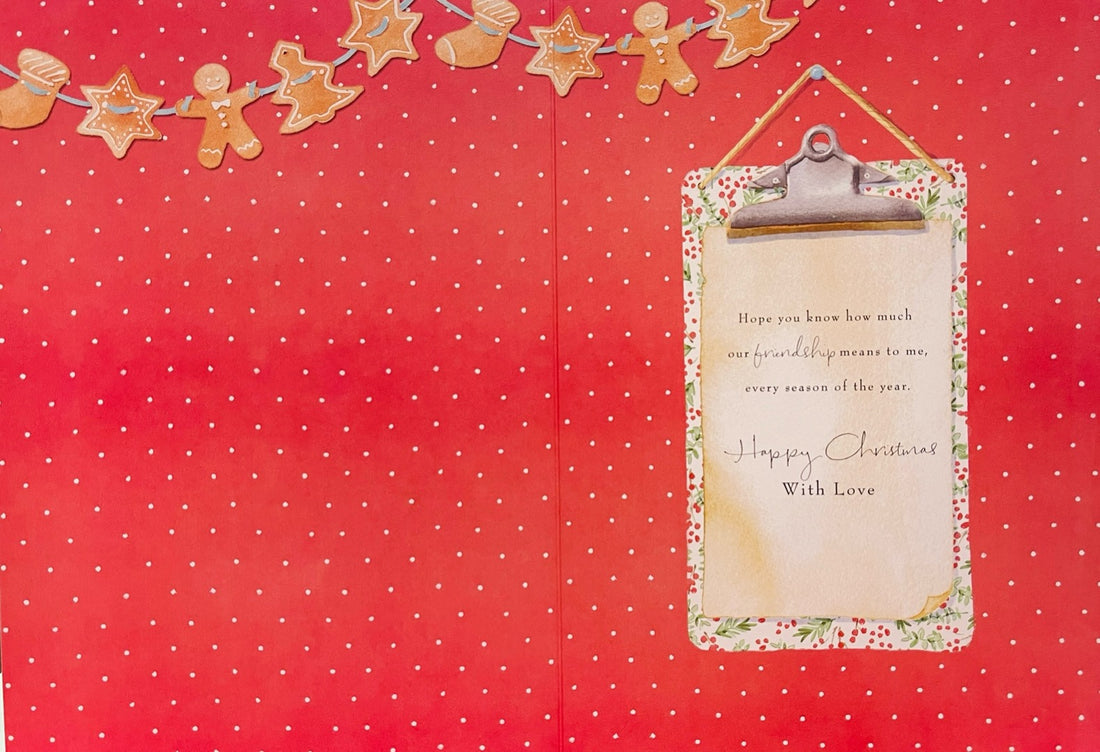 Hope you know how much
our friendship means to me,
every season of the year.
Happy Christmas
With Love